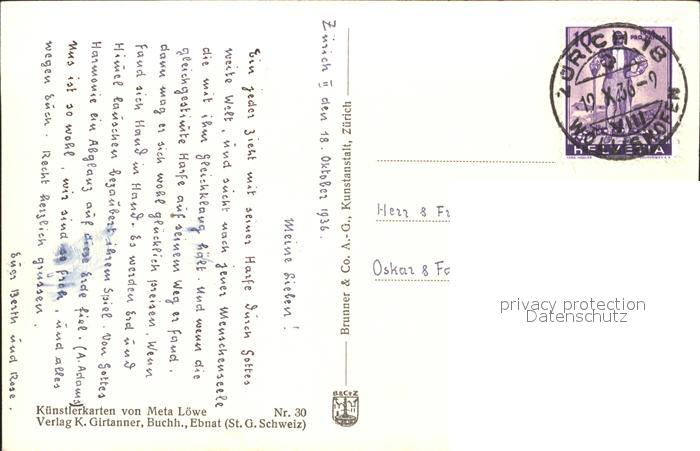 Zürich II den 18. Oktober 1936.
Meine Lieben!
Ein jeder zieht mit seiner Harfe durch Gottes
weite Welt, und sucht nach jener Menschenseele
die mit ihm Gleichklang hält. Und wenn die
gleichgestimte Harfe auf seinem Weg er fand.
dann mag er sich wohl glücklich preisen. Wenn
fand sich Hand in Hand. Es werden Erd und
Himel lauschen bezaubert ihrem Spiel. Von Gottes
Harmonie ein Abglanz auf diese Erde fiel. (A. Adams)
Uns ist so wohl, wir sind so froh, und alles
wegen Euch. Recht herzlich grüssen.
Euer Berth und Rose.
Künstlerkarten von Meta Löwe Nr. 30
Verlag K. Girtanner, Buchh., Ebnat (St. G. Schweiz)
Brunner & Co. A.-G., Kunstanstalt, Zürich
B&C°Z
10
PRO PATRIA
HELVETIA
ZÜRICH 18
X.36-9
XIII
WOLLISHOFEN
Herr & Fr
Oskar & Fa
privacy protection
Datenschutz